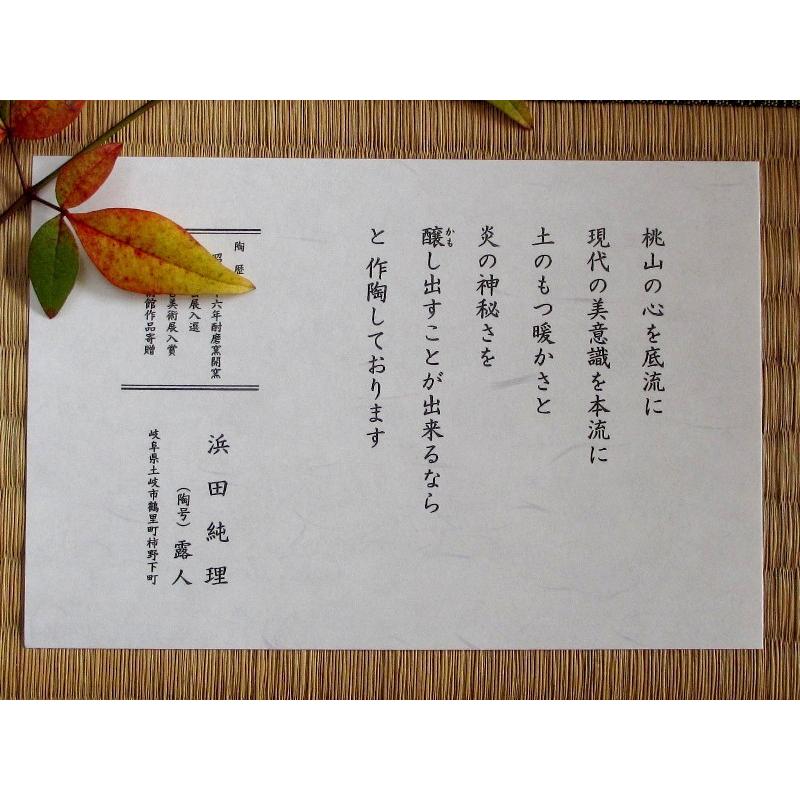 桃山の心を底流に
現代の美意識を本流に
土のもつ暖かさと
炎の神秘さを
醸し出すことが出来るなら
かも
と 作陶しております
陶歴
昭 六年耐磨窯開窯
展入選
美術展入賞
館作品寄贈
浜田純理
(陶号) 露人
岐阜県土岐市鶴里町柿野下町